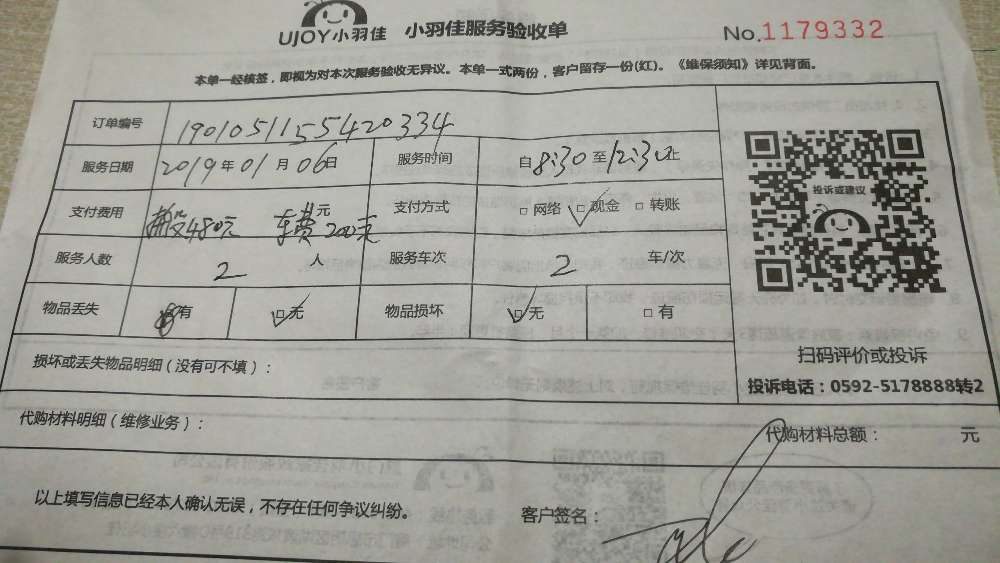 UJOY小羽佳 小羽佳服务验收单 No.1179332
本单一经核签，即视为对本次服务验收无异议。本单一式两份，客户留存一份(红)。《维保须知》详见背面。
订单编号 190105115420334
服务日期 2019年01月06日 服务时间 自8:30至12:30止
支付费用 搬运480元 车费200元 元 支付方式 □网络 □现金 □转账
服务人数 2人 服务车次 2 车/次
物品丢失 □有 □无 物品损坏 □无 □有
投诉或建议
扫码评价或投诉
投诉电话：0592-5178888转2
损坏或丢失物品明细（没有可不填）：
代购材料明细（维修业务）：
代购材料总额： 元
以上填写信息已经本人确认无误，不存在任何争议纠纷。
客户签名：